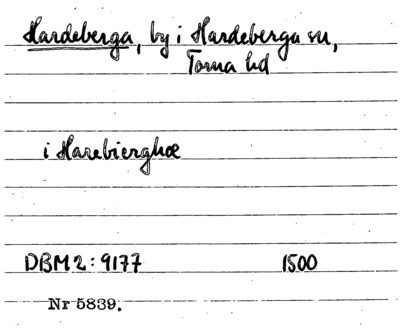 Hardeberga, by i Hardeberga sn,
Torna hd
i Harebierghæ
DBM 2: 9177 1500
Nr 5839.